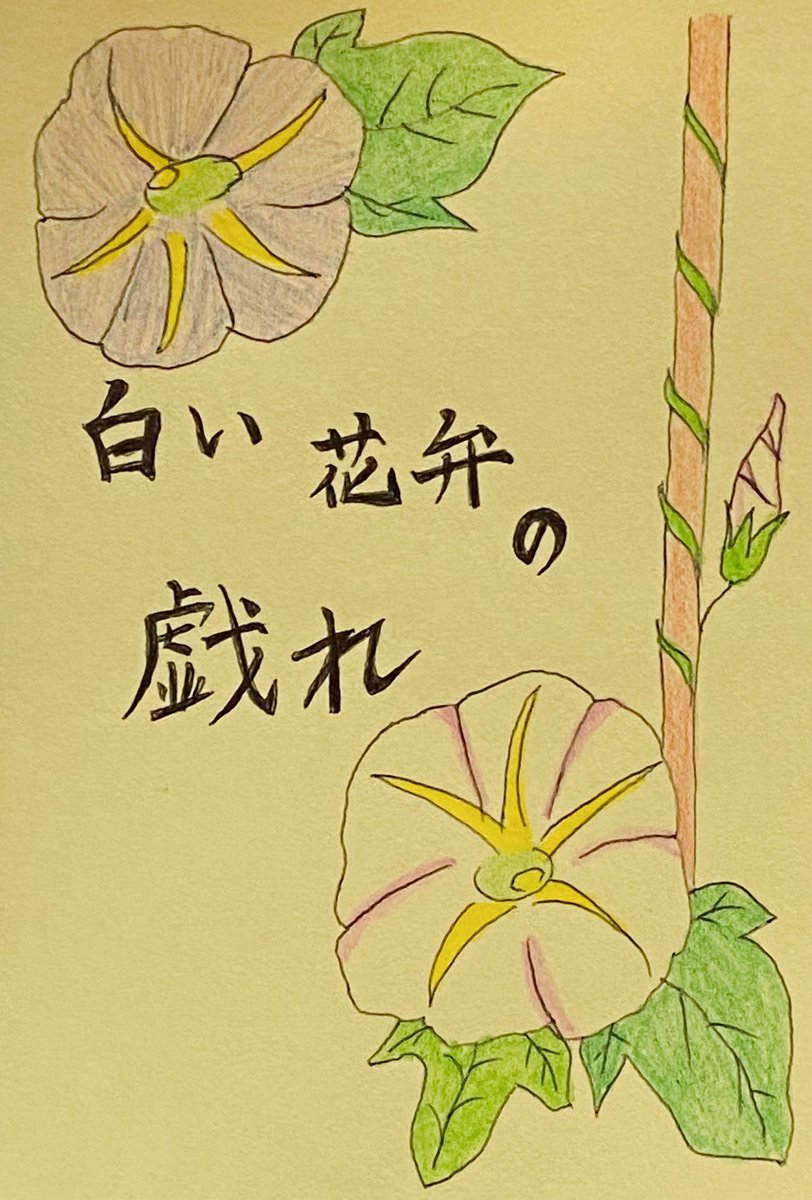 白い花弁の
戯れ